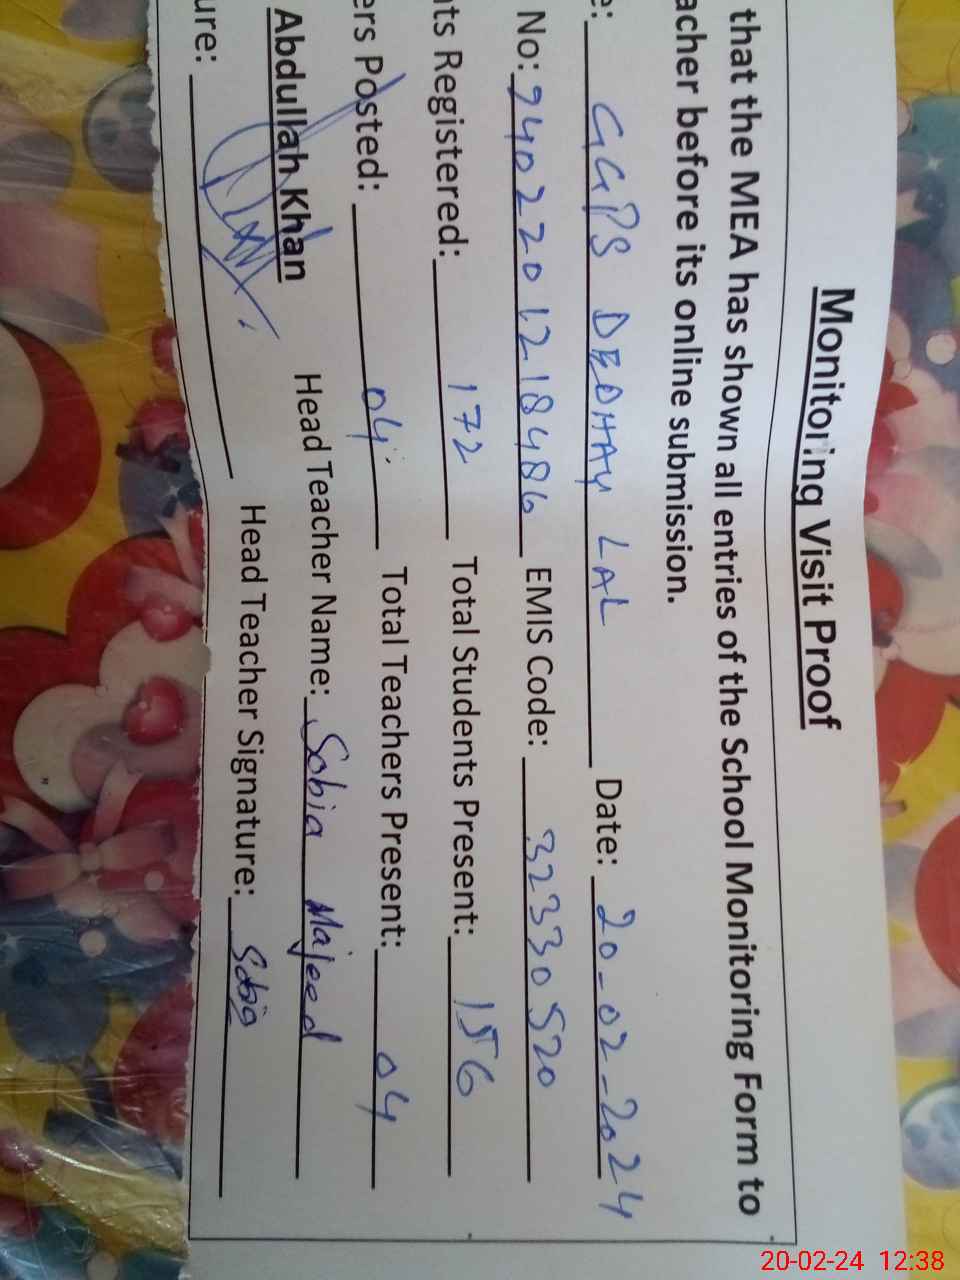 Monitoring Visit Proof
that the MEA has shown all entries of the School Monitoring Form to
acher before its online submission.
e: GGPS DEDHAY LAL Date: 20-02-2024
No: 2402201218486 EMIS Code: 32330520
nts Registered: 172 Total Students Present: 156
ers Posted: 04 Total Teachers Present: 04
Abdullah Khan Head Teacher Name: Sobia Majeed
ure: Head Teacher Signature: Sobia
20-02-24 12:38